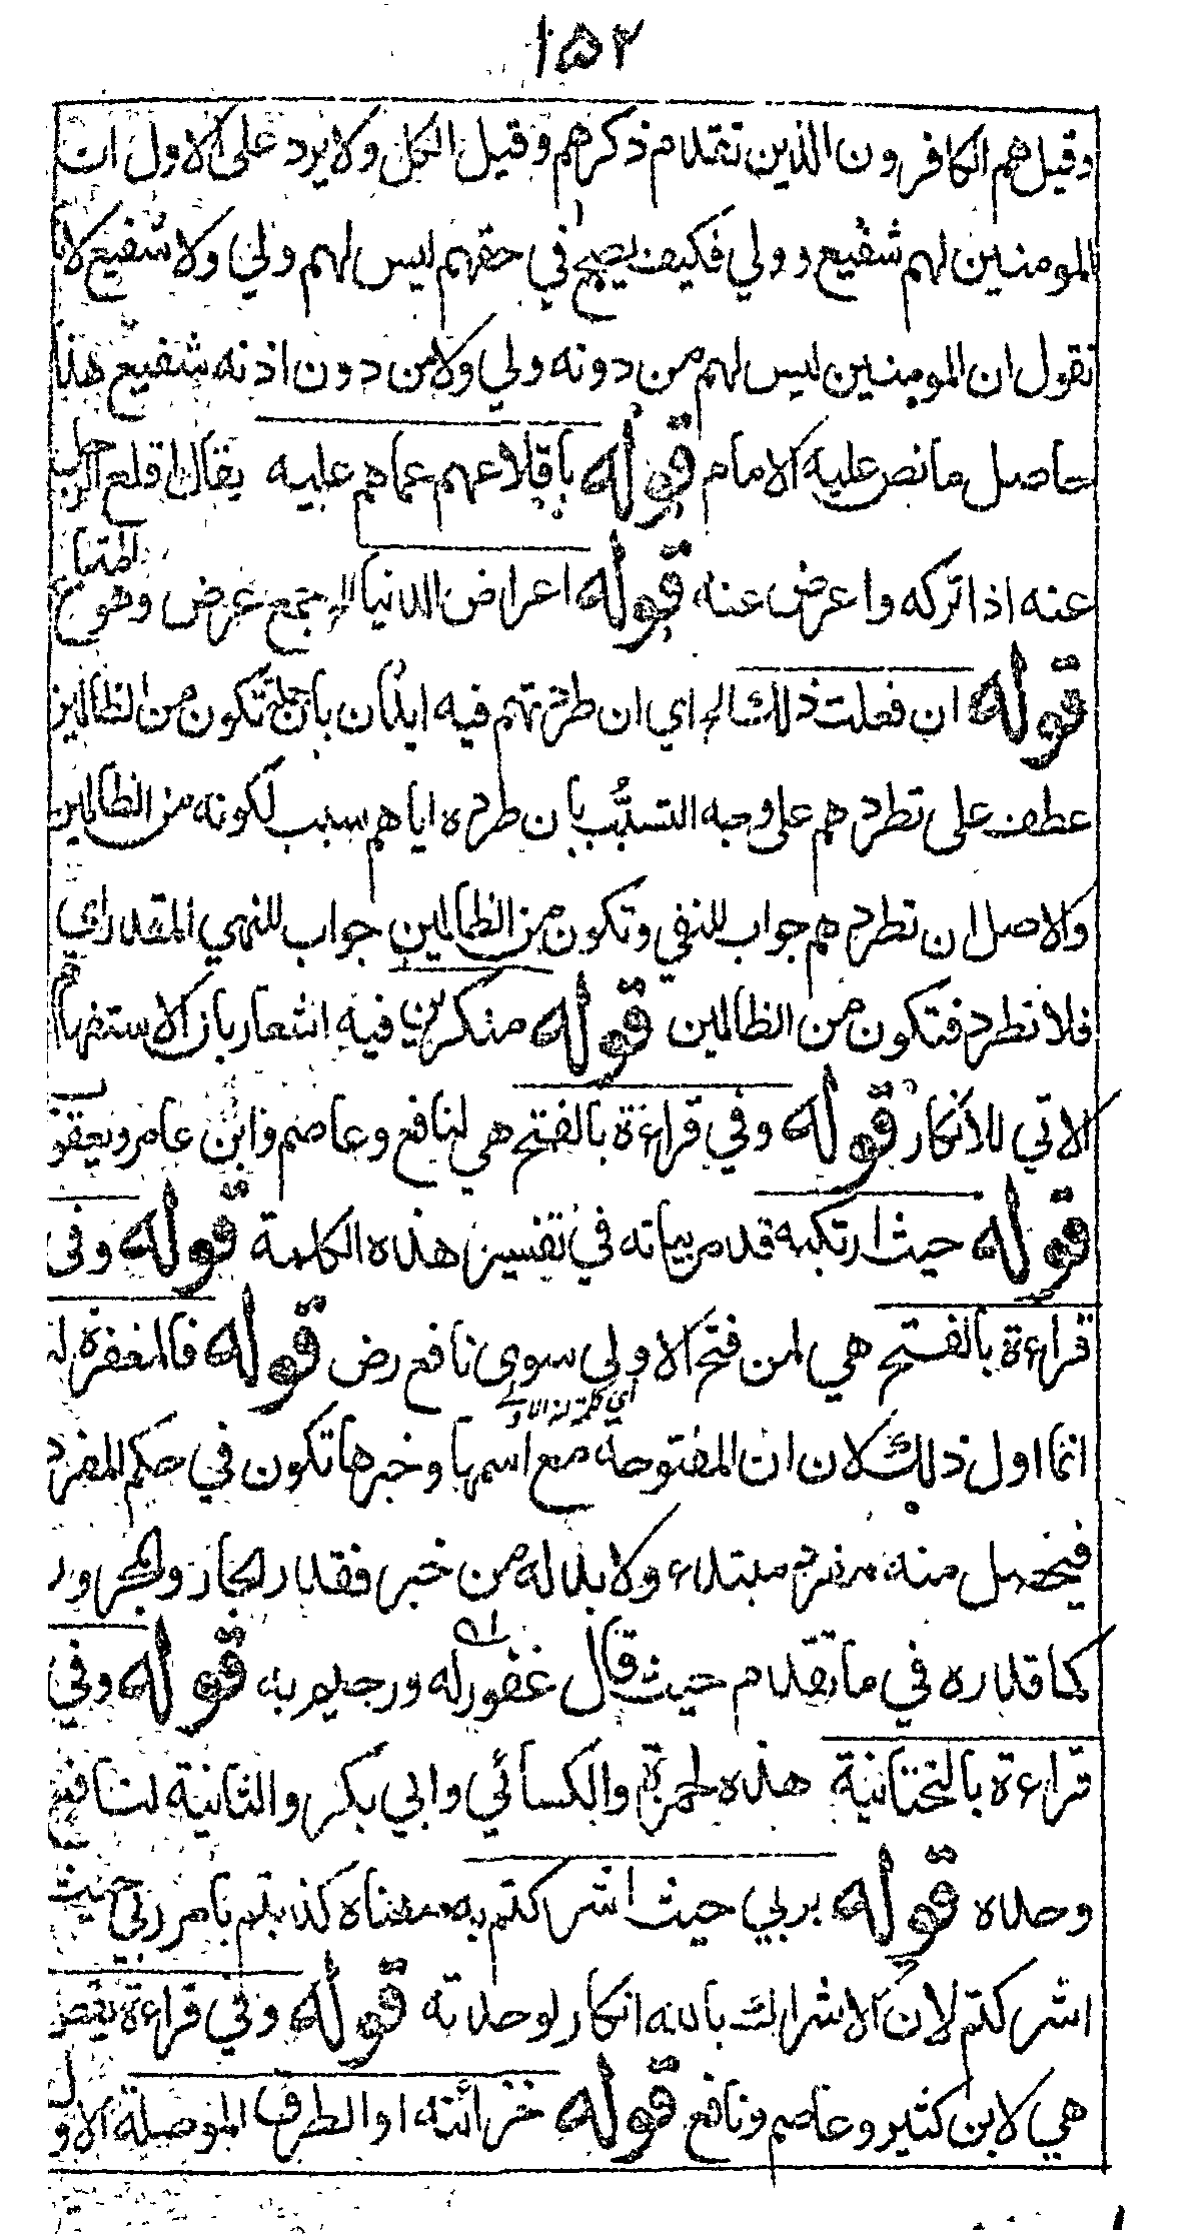 ١٥٢
وقيل هم الكافرون الذين تقدم ذكرهم وقيل الكل ولا يرد على الاول ان
المومنين لهم شفيع وولي فكيف يصح في حقهم ليس لهم ولي ولا شفيع لانا
نقول ان المومنين ليس لهم من دونه ولي ولا من دون اذنه شفيع هذا
حاصل ما نص عليه الامام قوله باقلاعهم عماهم عليه يقال اقلع الرجل
عنه اذا تركه واعرض عنه قوله اعراض الدنيا الخ جمع عرض وهو المتاع
قوله ان فعلت ذلك الخ اي ان طردتهم فيه ايذان بان جملة تكون من الظالمين
عطف على تطردهم على وجه التسبّب بان طرده اياهم سبب لكونه من الظالمين
والاصل ان تطردهم جواب للنفي وتكون من الظالمين جواب للنهي المقدر اي
فلا تطردهم فتكون من الظالمين قوله منكرين فيه اشعار بان الاستفهام
الاتي للانكار قوله وفي قراءة بالفتح هي لنافع وعاصم وابن عامر ويعقوب
قوله حيث ارتكبه قد مر بيانه في تفسير هذه الكلمة قوله وفي
قراءة بالفتح هي لمن فتح الاولى سوى نافع رض قوله فالمغفرة له
اي كلمة ان الاولى
انما اول ذلك لان ان المفتوحة مع اسمها وخبرها تكون في حكم المفرد
فيحصل منه مفرد مبتداء ولا بد له من خبر فقدر الجار والمجرور
كما قدره في ما تقدم حيث قال اي غفور له ورحيم به قوله وفي
قراءة بالتحتانية هذه لحمزة والكسائي وابي بكر والثانية لنافع
وحده قوله بربي حيث اشركتم به معناه كذبتم بامر ربي حيث
اشركتم لان الاشراك بالله انكار لوحدته قوله وفي قراءة يقص
هي لابن كثير وعاصم ونافع قوله خزائنه او الطرق الموصلة الاول